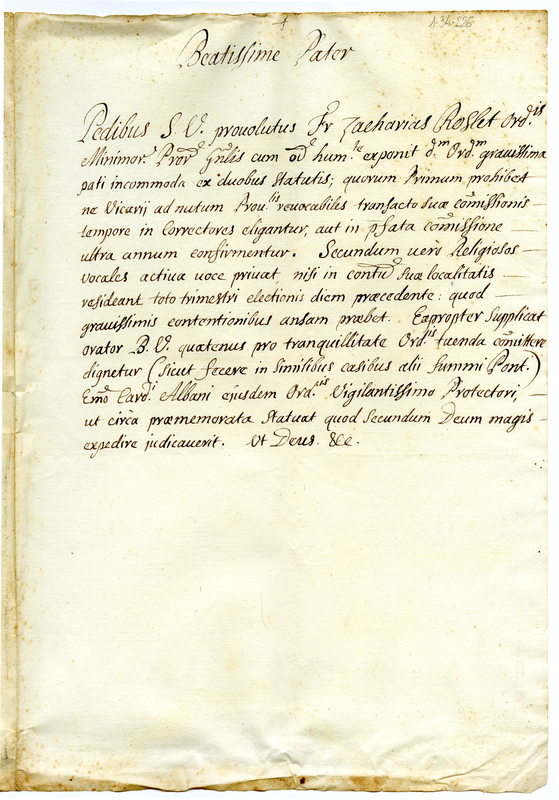 1-34-226
Beatissime Pater
Pedibus S. V. provolutus Fr Zacharias Roslet Ord.is
Minimor. Pror Gnlis cum oi hum.te exponit d.m Ord.m gravissima
pati incommoda ex duobus Statutis; quorum Primum prohibet
ne Vicarij ad nutum Prou.lis revocabiles transacto suæ comissionis
tempore in Correctores eligantur, aut in pfata comissione
ultra annum confirmentur. Secundum uero Religiosos
vocales actiua uoce priuat nisi in contiu suæ localitatis
resideant toto trimestri electionis diem præcedente: quod
gravissimis contentionibus ansam præbet. Eapropter Supplicat
orator B. V. quatenus pro tranquillitate Ord.is tuenda comittere
dignetur (Sicut fecere in similibus casibus alii summi Pont.)
Emo Card.i Albani ejusdem Ord.is Vigilantissimo Protectori,
ut circa præmemorata Statuat quod Secundum Deum magis
expedire judicauerit. Ut Deus. &c.